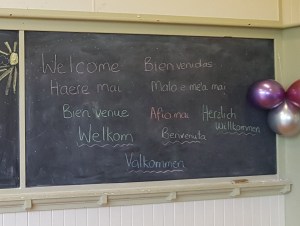 Welcome Bienvenidos
Haere mai Malo e me'a mai
Bienvenue Afio mai Herzlich
Willkommen
Welkom Benvenuta
Välkommen